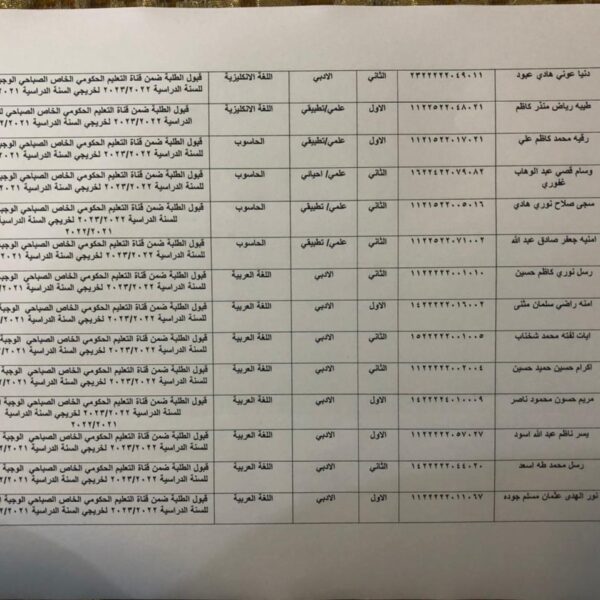 دنيا عوني هادي عبود ٢٣٢٢٢٢٢٠٤٩٠١١ الثاني الادبي اللغة الانكليزية قبول الطلبة ضمن قناة التعليم الحكومي الخاص الصباحي الوجبة
للسنة الدراسية ٢٠٢٣/٢٠٢٢ لخريجي السنة الدراسية
طيبه رياض منذر كاظم ١١٢٢٥٢٢٠٤٨٠٢١ الاول علمي/تطبيقي اللغة الانكليزية قبول الطلبة ضمن قناة التعليم الحكومي الخاص الصباحي
الدراسية ٢٠٢٣/٢٠٢٢ لخريجي السنة الدراسية
رقيه محمد كاظم علي ١١٢١٥٢٢٠١٧٠٢١ الاول علمي/تطبيقي الحاسوب قبول الطلبة ضمن قناة التعليم الحكومي الخاص الصباحي الوجبة
للسنة الدراسية ٢٠٢٣/٢٠٢٢ لخريجي السنة الدراسية
وسام قصي عبد الوهاب ١٦٢٢٤٢٢٠٧٩٠٨٢ الثاني علمي/ احيائي الحاسوب قبول الطلبة ضمن قناة التعليم الحكومي الخاص الصباحي الوجبة
غفوري للسنة الدراسية ٢٠٢٣/٢٠٢٢ لخريجي السنة الدراسية
سجى صلاح نوري هادي ١١٢١٥٢٢٠٠٥٠١٦ الثاني علمي/ تطبيقي الحاسوب قبول الطلبة ضمن قناة التعليم الحكومي الخاص الصباحي الوجبة
للسنة الدراسية ٢٠٢٣/٢٠٢٢ لخريجي السنة الدراسية
٢٠٢٢/٢٠٢١
امنيه جعفر صادق عبد الله ١١٢٢٥٢٢٠٧١٠٠٢ الثاني علمي/ تطبيقي الحاسوب قبول الطلبة ضمن قناة التعليم الحكومي الخاص الصباحي الوجبة
للسنة الدراسية ٢٠٢٣/٢٠٢٢ لخريجي السنة الدراسية
رسل نوري كاظم حسين ١١٢٢٢٢٢٠٠١٠١٠ الثاني الادبي اللغة العربية قبول الطلبة ضمن قناة التعليم الحكومي الخاص الصباحي الوجبة
للسنة الدراسية ٢٠٢٣/٢٠٢٢ لخريجي السنة الدراسية
امنه راضي سلمان مثنى ١٤٢٢٢٢٢٠١٦٠٠٢ الاول الادبي اللغة العربية قبول الطلبة ضمن قناة التعليم الحكومي الخاص الصباحي الوجبة
للسنة الدراسية ٢٠٢٣/٢٠٢٢ لخريجي السنة الدراسية
ايات لفته محمد شخناب ١٥٢٢٢٢٢٠٠١٠٠٥ الثاني الادبي اللغة العربية قبول الطلبة ضمن قناة التعليم الحكومي الخاص الصباحي الوجبة
للسنة الدراسية ٢٠٢٣/٢٠٢٢ لخريجي السنة الدراسية
اكرام حسين حميد حسين ١١٢٢٢٢٢٠٠٢٠٠٤ الثاني الادبي اللغة العربية قبول الطلبة ضمن قناة التعليم الحكومي الخاص الصباحي الوجبة
للسنة الدراسية ٢٠٢٣/٢٠٢٢ لخريجي السنة الدراسية
مريم حسون محمود ناصر ١٤٢٢٢٢٤٠١٠٠٠٩ الاول الادبي اللغة العربية قبول الطلبة ضمن قناة التعليم الحكومي الخاص الصباحي الوجبة
للسنة الدراسية ٢٠٢٣/٢٠٢٢ لخريجي السنة الدراسية
٢٠٢٢/٢٠٢١
يسر ناظم عبد الله اسود ١١٢٢٢٢٢٠٥٧٠٢٧ الاول الادبي اللغة العربية قبول الطلبة ضمن قناة التعليم الحكومي الخاص الصباحي الوجبة
للسنة الدراسية ٢٠٢٣/٢٠٢٢ لخريجي السنة الدراسية
رسل محمد طه اسعد ١٤٢٢٢٢٢٠٤٤٠٢٠ الثاني الادبي اللغة العربية قبول الطلبة ضمن قناة التعليم الحكومي الخاص الصباحي الوجبة
للسنة الدراسية ٢٠٢٣/٢٠٢٢ لخريجي السنة الدراسية
نور الهدى عثمان مسلم جوده ١١٢٢٢٢٢٠١١٠٦٧ الاول الادبي اللغة العربية قبول الطلبة ضمن قناة التعليم الحكومي الخاص الصباحي الوجبة
للسنة الدراسية ٢٠٢٣/٢٠٢٢ لخريجي السنة الدراسية